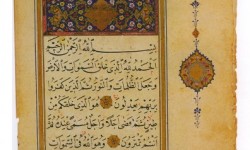 بسم الله الرحمن الرحيم
الحمد لله الذي خلق السموات والأرض
وجعل الظلمات والنور ثم الذين كفروا
بربهم يعدلون هو الذي خلقكم من
طين ثم قضى أجلا وأجل مسمى عنده
ثم أنتم تمترون وهو الله في السموات